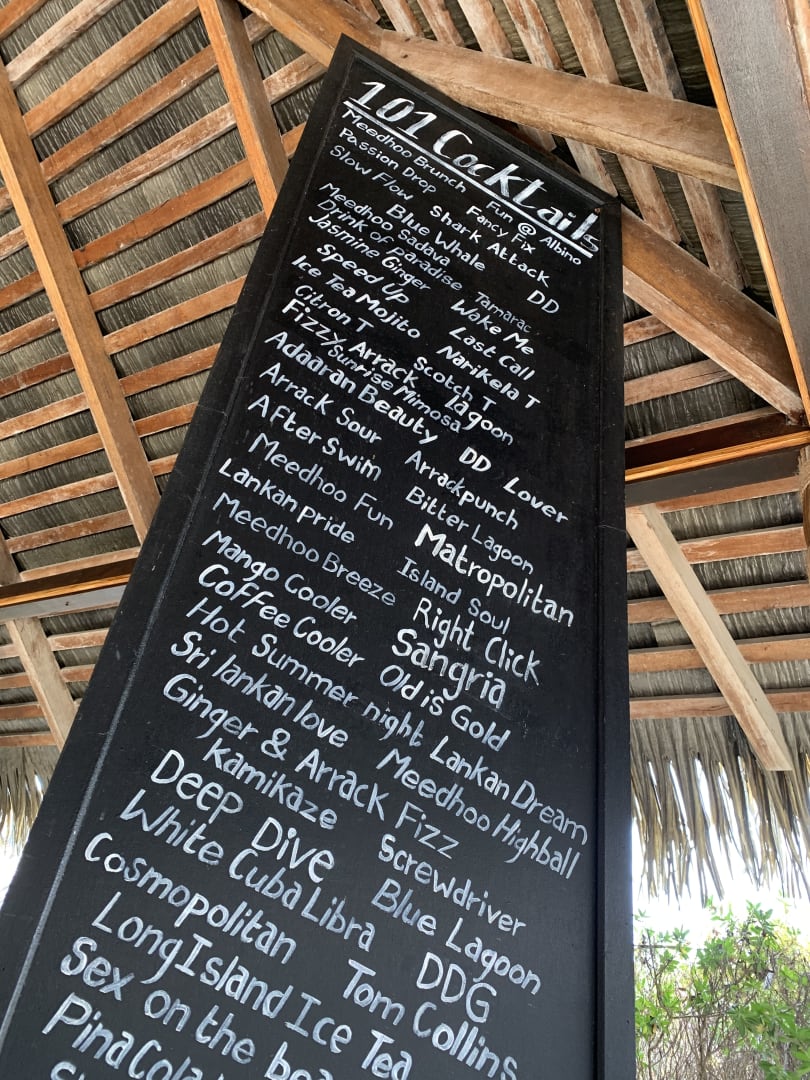 101 Cocktails
Meedhoo Brunch Fun @ Albino
Passion Drop Fancy Fix
Slow Flow Shark Attack
Blue Whale DD
Meedhoo Sadava Tamarac
Drink of paradise Wake Me
Jasmine Ginger Last Call
Speed Up Narikela T
Ice Tea Mojito Scotch T
Citron T Lagoon
Fizzy Arrack
Sunrise Mimosa
Adaaran Beauty DD Lover
Arrack Sour Arrackpunch
After Swim Bitter Lagoon
Meedhoo Fun Matropolitan
Lankan pride Island Soul
Meedhoo Breeze Right Click
Mango Cooler Sangria
Coffee Cooler Old is Gold
Hot Summer night Lankan Dream
Sri lankan love Meedhoo Highball
Ginger & Arrack Fizz
Kamikaze Screwdriver
Deep Dive Blue Lagoon
White Cuba Libra DDG
Cosmopolitan Tom Collins
Long Island Ice Tea
Sex on the
Pina